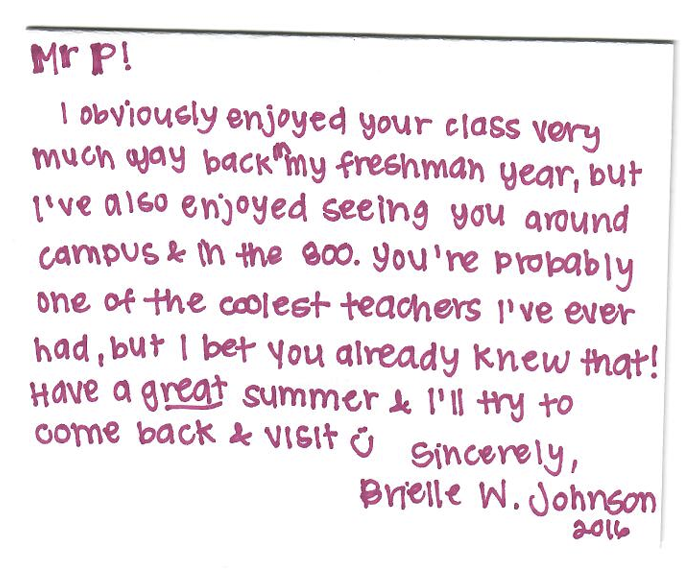 Mr P!
I obviously enjoyed your class very
much way back in my freshman year, but
I've also enjoyed seeing you around
campus & in the 800. You're probably
one of the coolest teachers I've ever
had, but I bet you already knew that!
Have a great summer & I'll try to
come back & visit ☺
Sincerely,
Brielle W. Johnson
2016